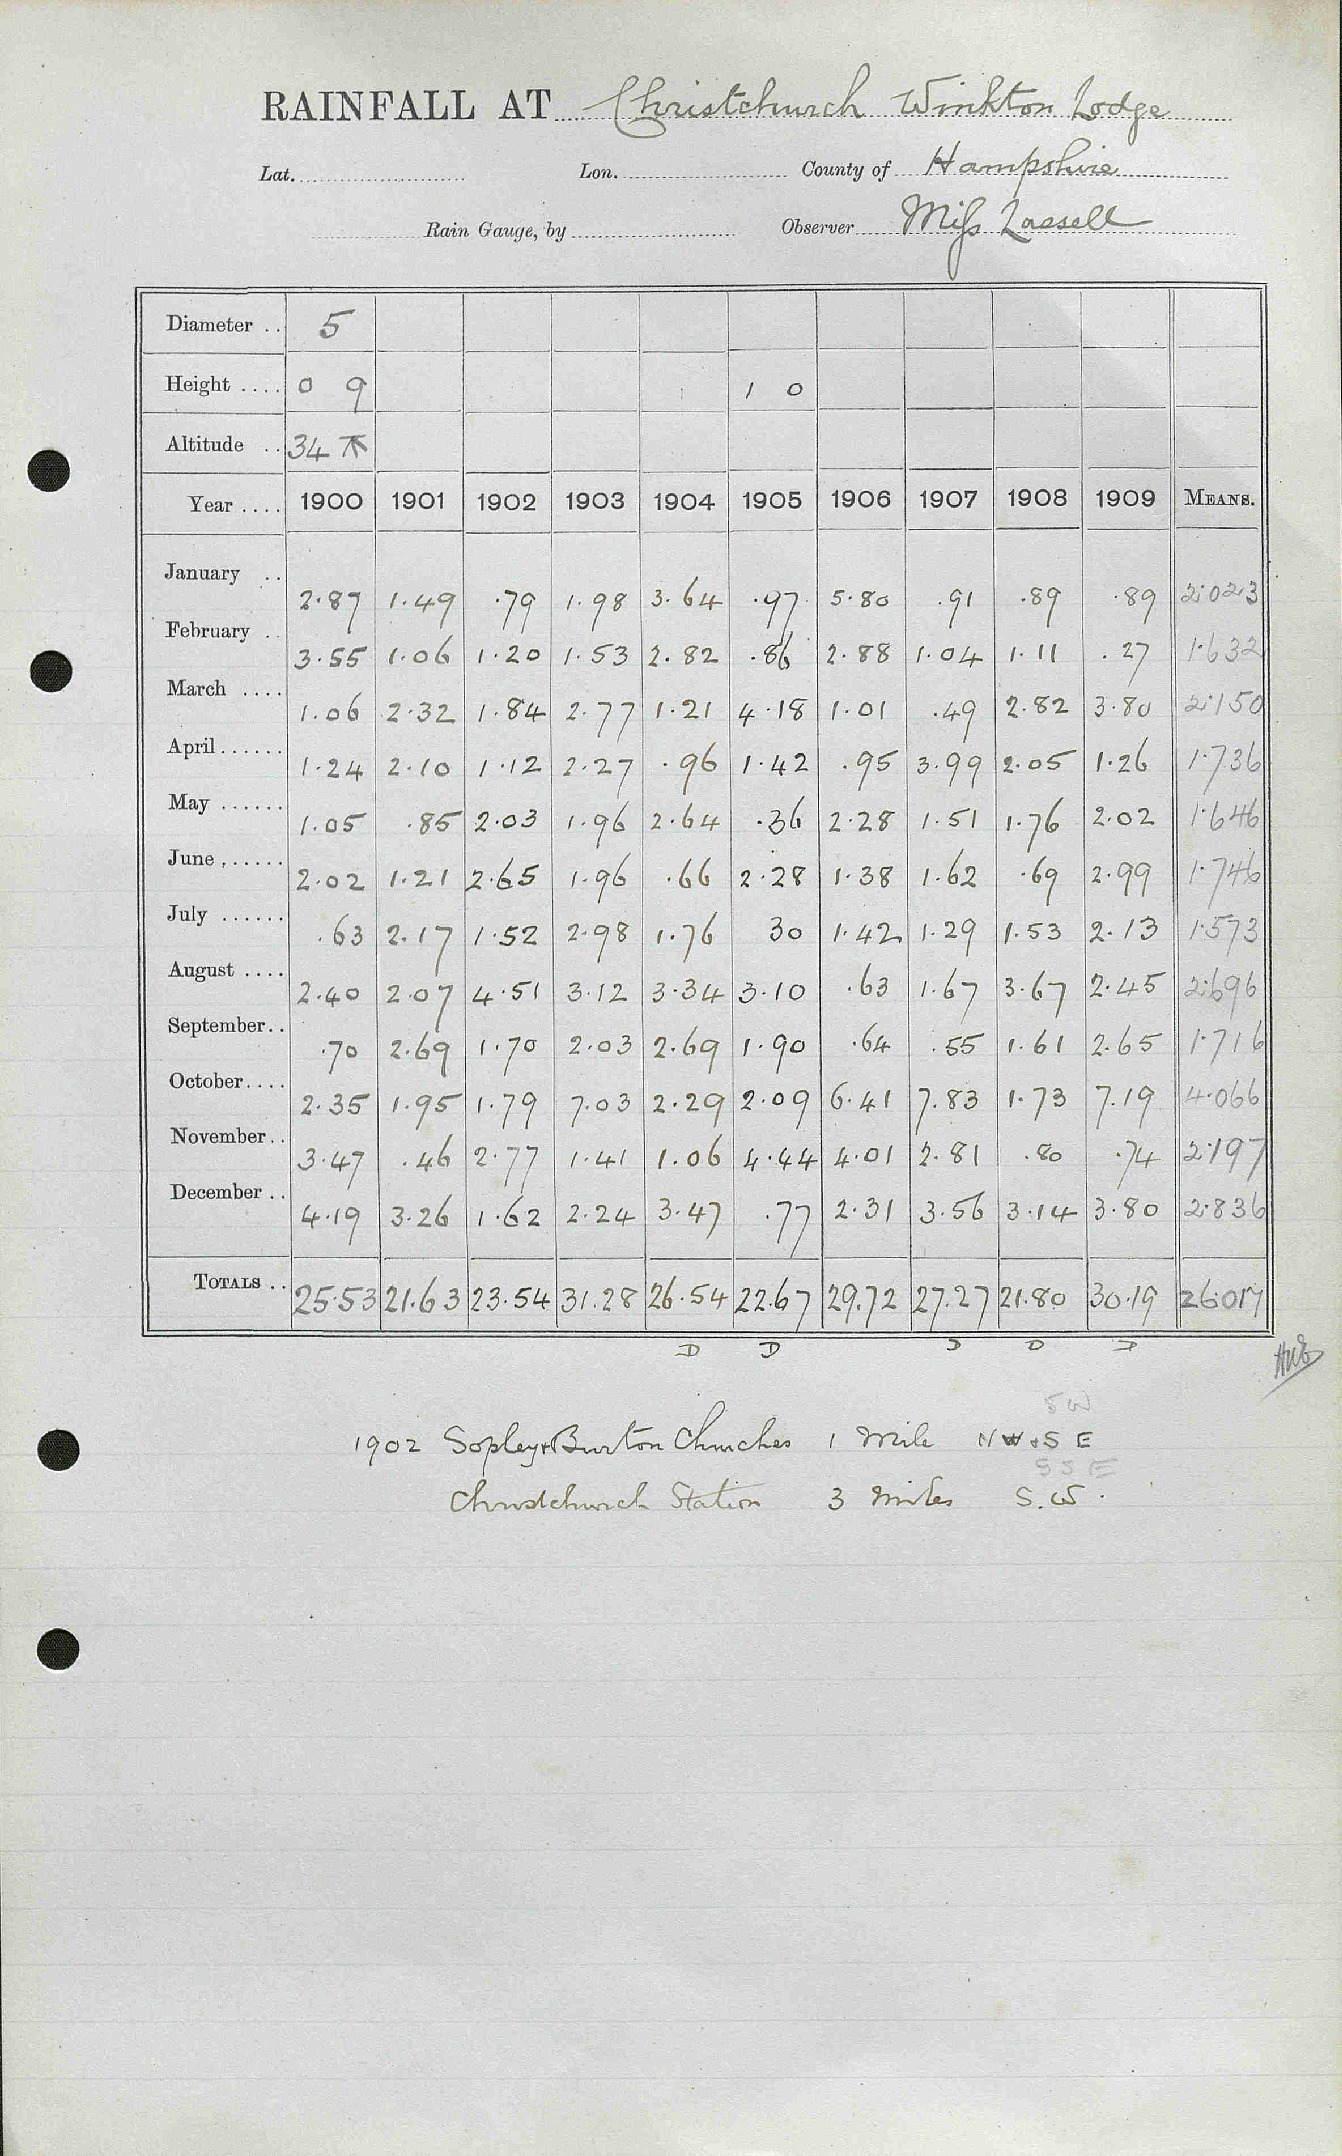 RAINFALL AT Christchurch Winkton Lodge
Lat. Lon. County of Hampshire
Rain Gauge, by Observer Miss Lassell
Diameter .. 5
Height .... 0 9 1 0
Altitude .. 34
Year .... 1900 1901 1902 1903 1904 1905 1906 1907 1908 1909 MEANS.
January .. 2.87 1.49 .79 1.98 3.64 .97 5.80 .91 .89 .89 2.023
February .. 3.55 1.06 1.20 1.53 2.82 .86 2.88 1.04 1.11 .27 1.632
March .... 1.06 2.32 1.84 2.77 1.21 4.18 1.01 .49 2.82 3.80 2.150
April ...... 1.24 2.10 1.12 2.27 .96 1.42 .95 3.99 2.05 1.26 1.736
May ...... 1.05 .85 2.03 1.96 2.64 .36 2.28 1.51 1.76 2.02 1.646
June ...... 2.02 1.21 2.65 1.96 .66 2.28 1.38 1.62 .69 2.99 1.746
July ...... .63 2.17 1.52 2.98 1.76 30 1.42 1.29 1.53 2.13 1.573
August .... 2.40 2.07 4.51 3.12 3.34 3.10 .63 1.67 3.67 2.45 2.696
September .. .70 2.69 1.70 2.03 2.69 1.90 .64 .55 1.61 2.65 1.716
October .... 2.35 1.95 1.79 7.03 2.29 2.09 6.41 7.83 1.73 7.19 4.066
November .. 3.47 .46 2.77 1.41 1.06 4.44 4.01 2.81 .80 .74 2.197
December .. 4.19 3.26 1.62 2.24 3.47 .77 2.31 3.56 3.14 3.80 2.836
TOTALS .. 25.53 21.63 23.54 31.28 26.54 22.67 29.72 27.27 21.80 30.19 26.017
D D D D D
SW
1902 Sopley & Burton Churches 1 Mile NW & SE
SSE
Christchurch Station 3 Miles S.W.